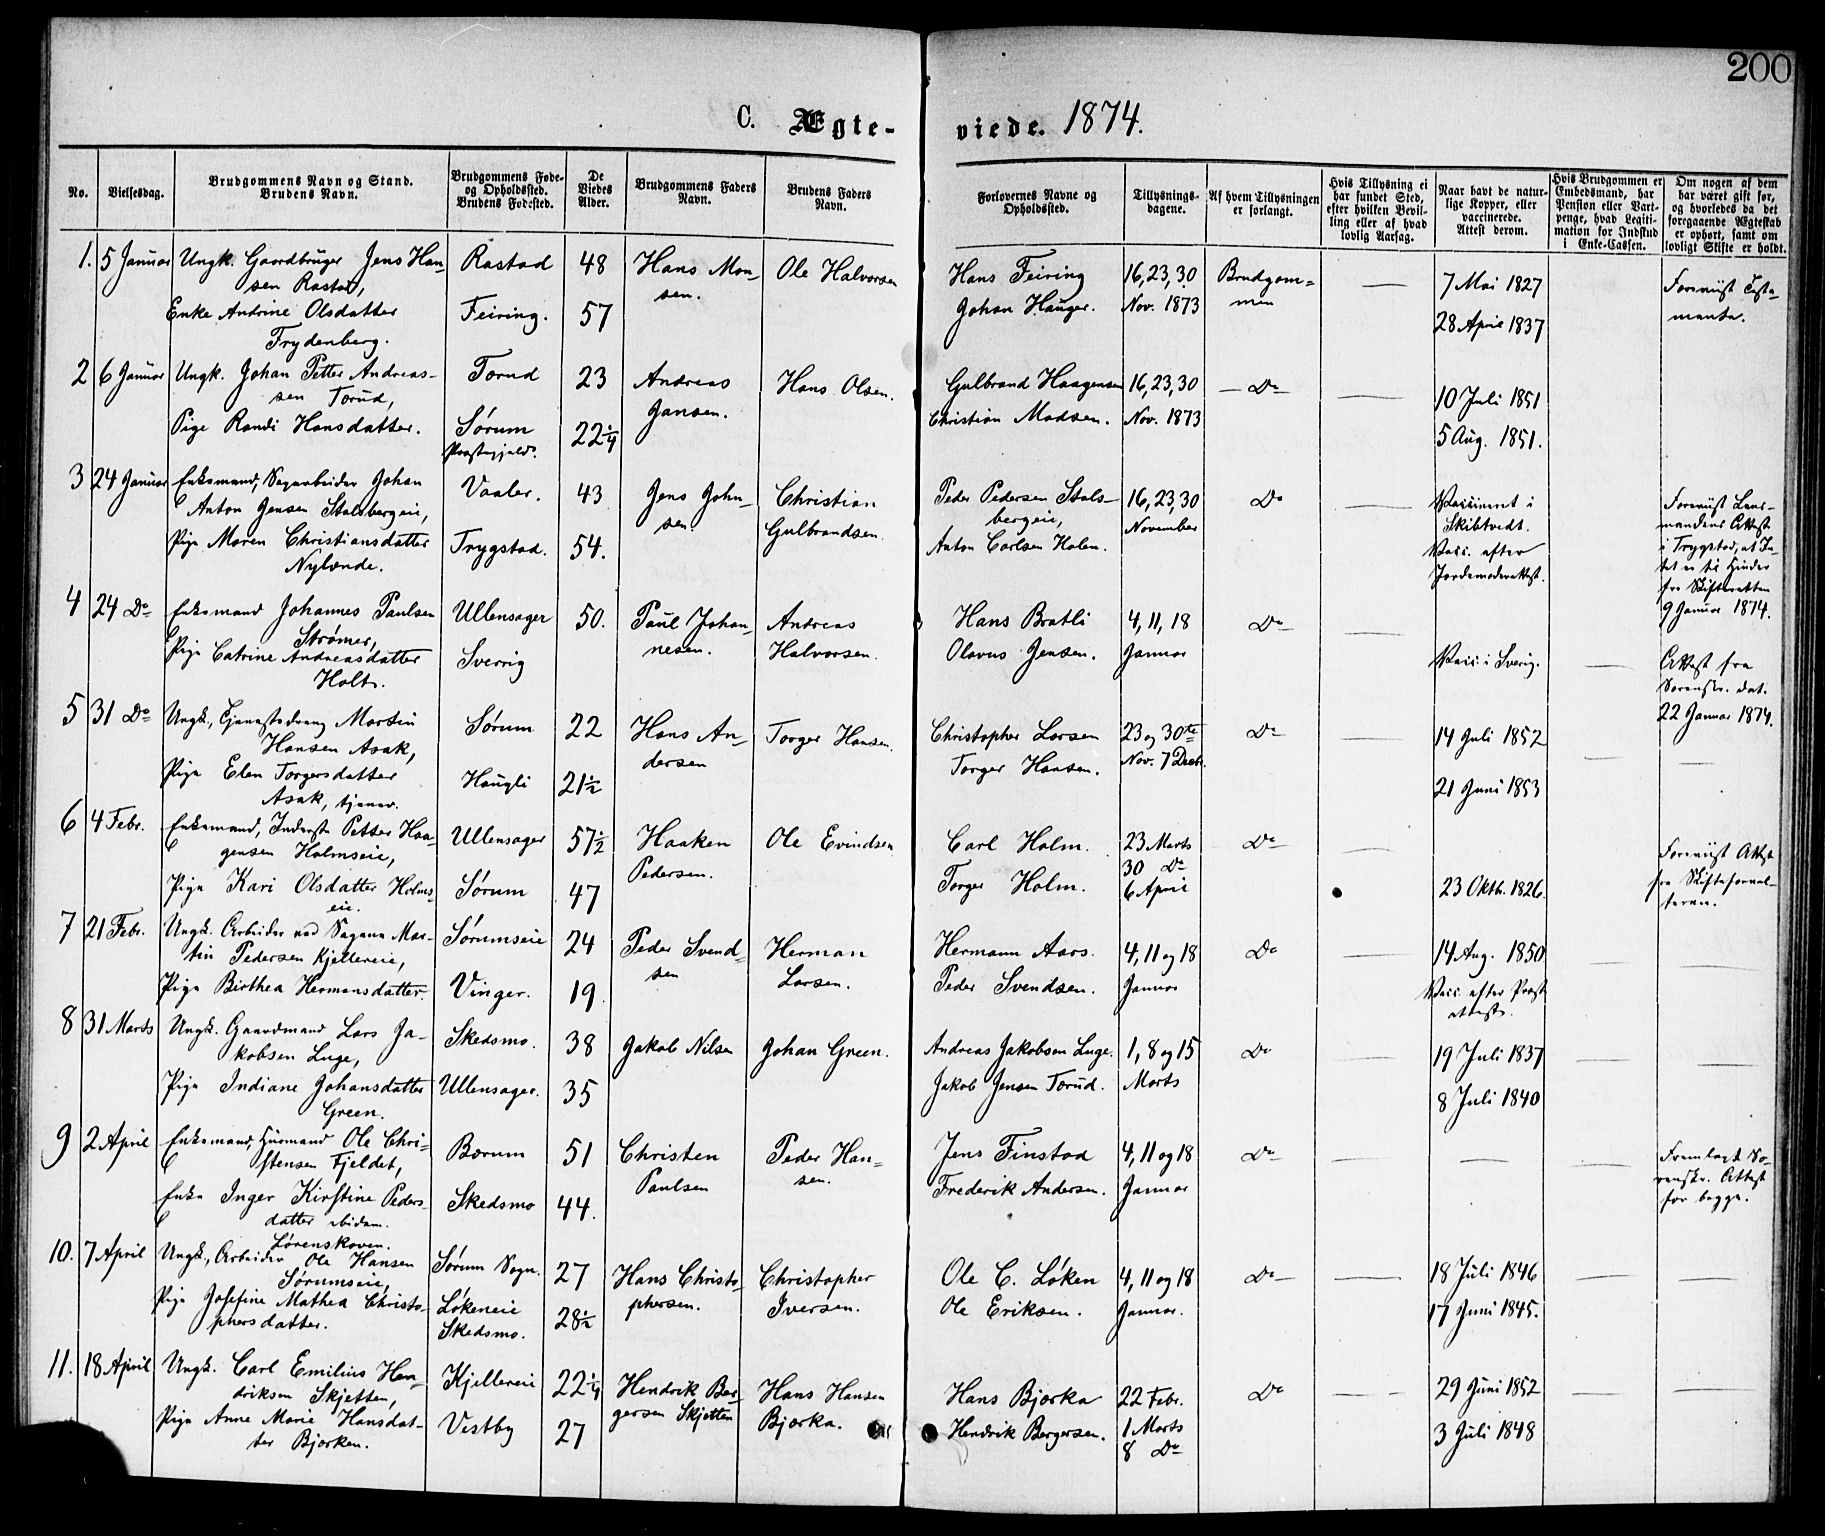 200
C. Ægte-viede. 1874.
No.
Vielsesdag.
Brudgommens Navn og Stand.
Brudens Navn.
Brudgommens Føde-
og Opholdssted.
Brudens Fødested.
De
Viedes
Alder.
Brudgommens Faders
Navn.
Brudens Faders
Navn.
Forlovernes Navne og
Opholdssted.
Tillysnings-
dagene.
Af hvem Tillysningen
er forlangt.
Hvis Tillysning ei
har fundet Sted,
efter hvilken Bevil-
ling eller af hvad
lovlig Aarsag.
Naar havt de natur-
lige Kopper, eller
vaccinerede.
Attest derom.
Hvis Brudgommen er
Embedsmand, har
Pension eller Vart-
penge, hvad Legiti-
mation for Indskud
i Enke-Cassen.
Om nogen af dem
har været gift før,
og hvorledes da det
foregaaende Ægteskab
er ophørt, samt om
lovligt Skifte er holdt.
1. 5 Januar
Ungk. Gaardbruger Jens Han-
sen Rastad,
Enke Andrine Olsdatter
Frydenberg.
Rastad
Feiring.
48
57
Hans Mon-
sen.
Ole Halvorsen
Hans Feiring
Johan Hauger.
16, 23, 30
Nov. 1873
Brudgom-
men
7 Mai 1827
28 April 1837
Foreviist Testa-
mente.
2 6 Januar
Ungk. Johan Petter Andreas-
sen Torud,
Pige Randi Hansdatter.
Torud
Sørum
Præstegjeld.
23
22 1/4
Andreas
Jansen.
Hans Olsen.
Gulbrand Haagensen
Christian Madsen.
16, 23, 30
Nov. 1873
Do
10 Juli 1851
5 Aug. 1851.
3 24 Januar
Enkemand, Sagarbeider Johan
Anton Jensen Stalsbergeie,
Pige Maren Christiansdatter
Nylænde.
Vaaler.
Trygstad.
43
54.
Jens John-
sen.
Christian
Gulbrandsen.
Peder Pedersen Stals-
bergeie,
Anton Carlsen Holm.
16, 23, 30
November
Do
Vaccineret i
Skibtvedt.
Vacc. efter
Jordemoderattest.
Foreviist Lens-
mandens Attest
i Trygstad, at In-
tet er til Hinder
fra Skifteretten
9 Januar 1874.
4 24 Do
Enkemand Johannes Paulsen
Strømer,
Pige Catrine Andreasdatter
Holt.
Ullensager
Sverrig
50.
Paul Johan-
nesen.
Andreas
Halvorsen.
Hans Bratli
Olavus Jensen.
4, 11, 18
Januar
Do
Vacc. i Sverig.
Attest fra
Sorenskr. dat.
22 Januar 1874.
5 31 Do
Ungk., Tjenestedreng Martin
Hansen Asak,
Pige Elen Torgersdatter
Asak, tjener.
Sørum
Haugli
22
21 1/2
Hans An-
dersen
Torger Hansen.
Christopher Larsen
Torger Hansen.
23 og 30te
Nov. 7 Decbr.
Do
14 Juli 1852
21 Juni 1853
6 4 Febr.
Enkemand, Inderst Petter Haa-
gensen Holmseie,
Pige Kari Olsdatter Holms-
eie.
Ullensager
Sørum
57 1/2
47
Haaken
Pedersen.
Ole Evindsen
Carl Holm.
Torger Holm.
23 Marts
30 Do
6 April
Do
23 Oktb. 1826.
Foreviist Attest
fra Skifteforval-
teren.
7 21 Febr.
Ungk. Arbeider ved Sagene Mar-
tin Pedersen Kjellereie,
Pige Birthea Hermansdatter.
Sørumseie
Vinger.
24
19.
Peder Svend-
sen
Herman
Larsen.
Hermann Aars.
Peder Svendsen.
4, 11 og 18
Januar
Do
14 Aug. 1850
Vacc. efter Præst
attest.
8 31 Marts
Ungk. Gaardmand Lars Ja-
kobsen Luge,
Pige Indiane Johansdatter
Green.
Skedsmo.
Ullensager.
38
35
Jakob Nilsen
Johan Green.
Andreas Jakobsen Luge.
Jakob Jensen Torud.
1, 8 og 15
Marts
Do
19 Juli 1837
8 Juli 1840
9 2 April
Enkemand, Husmand Ole Chri-
stensen Fjeldet,
Enke Inger Kirstine Peders-
datter ibidem.
Lørenskoven.
Bærum
Skedsmo
51
44.
Christen
Paulsen
Peder Han-
sen.
Jens Finstad
Frederik Andersen.
4, 11 og 18
Januar
Do
Fremlagt So-
renskr. Attest
for begge.
10. 7 April
Ungk., Arbeider Ole Hansen
Sørumseie,
Pige Josefine Mathea Christo-
phersdatter.
Sørum Sogn.
Løkeneie
Skedsmo.
27
28 1/2
Hans Christo-
phersen.
Christopher
Iversen.
Ole C. Løken
Ole Eriksen.
4, 11 og 18
Januar.
Do
18 Juli 1846
17 Juni 1845.
11. 18 April
Ungk. Carl Emilius Hen-
driksen Skjetten,
Pige Anne Marie Hansdat-
ter Bjørken.
Kjellereie
Vestby
22 1/4
27
Hendrik Ber-
gersen Skjetten
Hans Hansen
Bjørka.
Hans Bjørka
Hendrik Bergersen.
22 Febr.
1 Marts
8 Do
Do
29 Juni 1852
3 Juli 1848